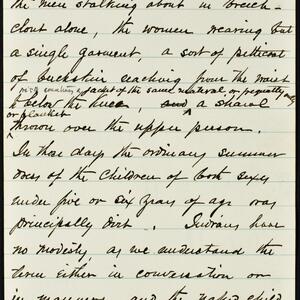 the men stalking about in breech-
clout alone, the women wearing but
a single garment, a sort of petticoat
of buckskin reaching from the waist
jacket of the same material, or frequently
to below the knee, and a shawl
or blanket
thrown over the upper person.
In those days the ordinary summer
dress of the children of both sexes
under five or six years of age was
principally dirt. Indians have
no modesty, as we understand the
term either in conversation or
in manners, and the naked child